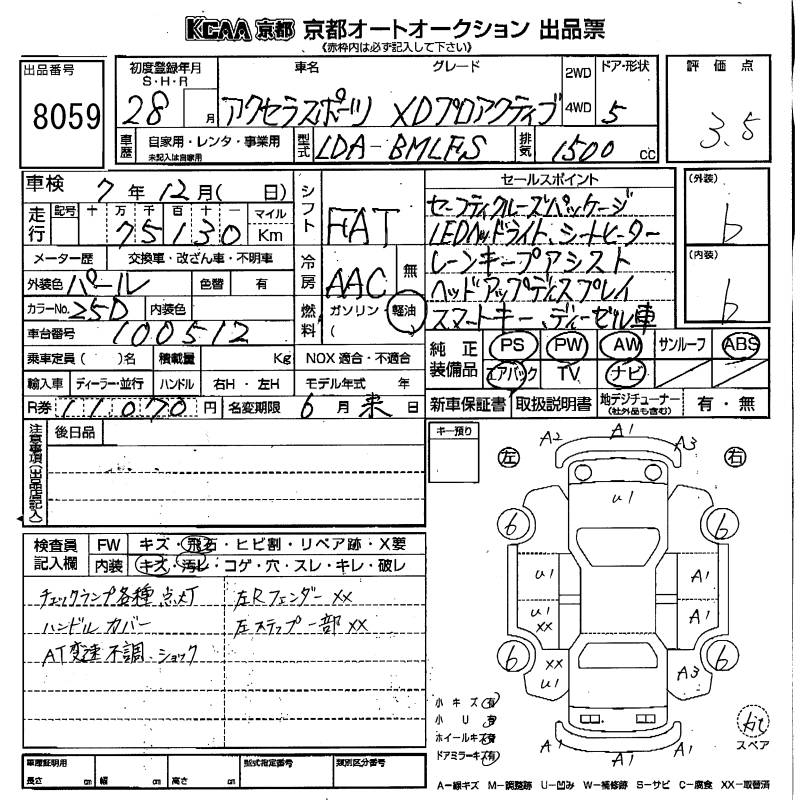 KCAA 京都 京都オートオークション 出品票
《赤枠内は必ず記入して下さい》
出品番号
8059
初度登録年月 S・H・R
28 月
車名 グレード
アクセラスポーツ XDプロアクティブ
2WD
4WD
ドア・形状
5
評価点
3.5
車歴 自家用・レンタ・事業用
未記入は自家用
型式 LDA-BMLFS
排気 1500 cc
車検 7年12月(日)
走行 記号 十 万 千 百 十 一 マイル
75130 Km
メーター歴 交換車・改ざん車・不明車
外装色 パール 色替 有
カラーNo. 25D 内装色
車台番号 100512
乗車定員( )名 積載量 Kg NOX 適合・不適合
輸入車 ディーラー・並行 ハンドル 右H・左H モデル年式 年
R券 11070円 名変期限 6月末日
シフト FAT
冷房 AAC 無
燃料 ガソリン・軽油
( )
セールスポイント
セーフティクルーズパッケージ
LEDヘッドライト、シートヒーター
レーンキープアシスト
ヘッドアップディスプレイ
スマートキー、ディーゼル車
(外装)
b
(内装)
b
純正装備品 PS PW AW サンルーフ ABS
エアバック TV ナビ
新車保証書 取扱説明書 地デジチューナー(社外品も含む) 有・無
注意事項(出品店記入)
後日品
検査員記入欄 FW キズ・飛石・ヒビ割・リペア跡・X要
内装 キズ・汚レ・コゲ・穴・スレ・キレ・破レ
チェックランプ各種点灯
ハンドルカバー
AT変速不調、ショック
左Rフェンダー XX
左ステップ一部 XX
キー預り
左 右
A2 A1 A3
U1
6 6
U1 A1
U1 XX A1
6 6
XX U1 A3
A1 A1 A1
小キズ 有
小U 有
ホイールキズ 有
ドアミラーキズ 有
スペア
A-線キズ M-調整跡 U-凹み W-補修跡 S-サビ C-腐食 XX-取替済
車庫証明用
長さ cm 幅 cm 高さ cm
型式指定番号
類別区分番号